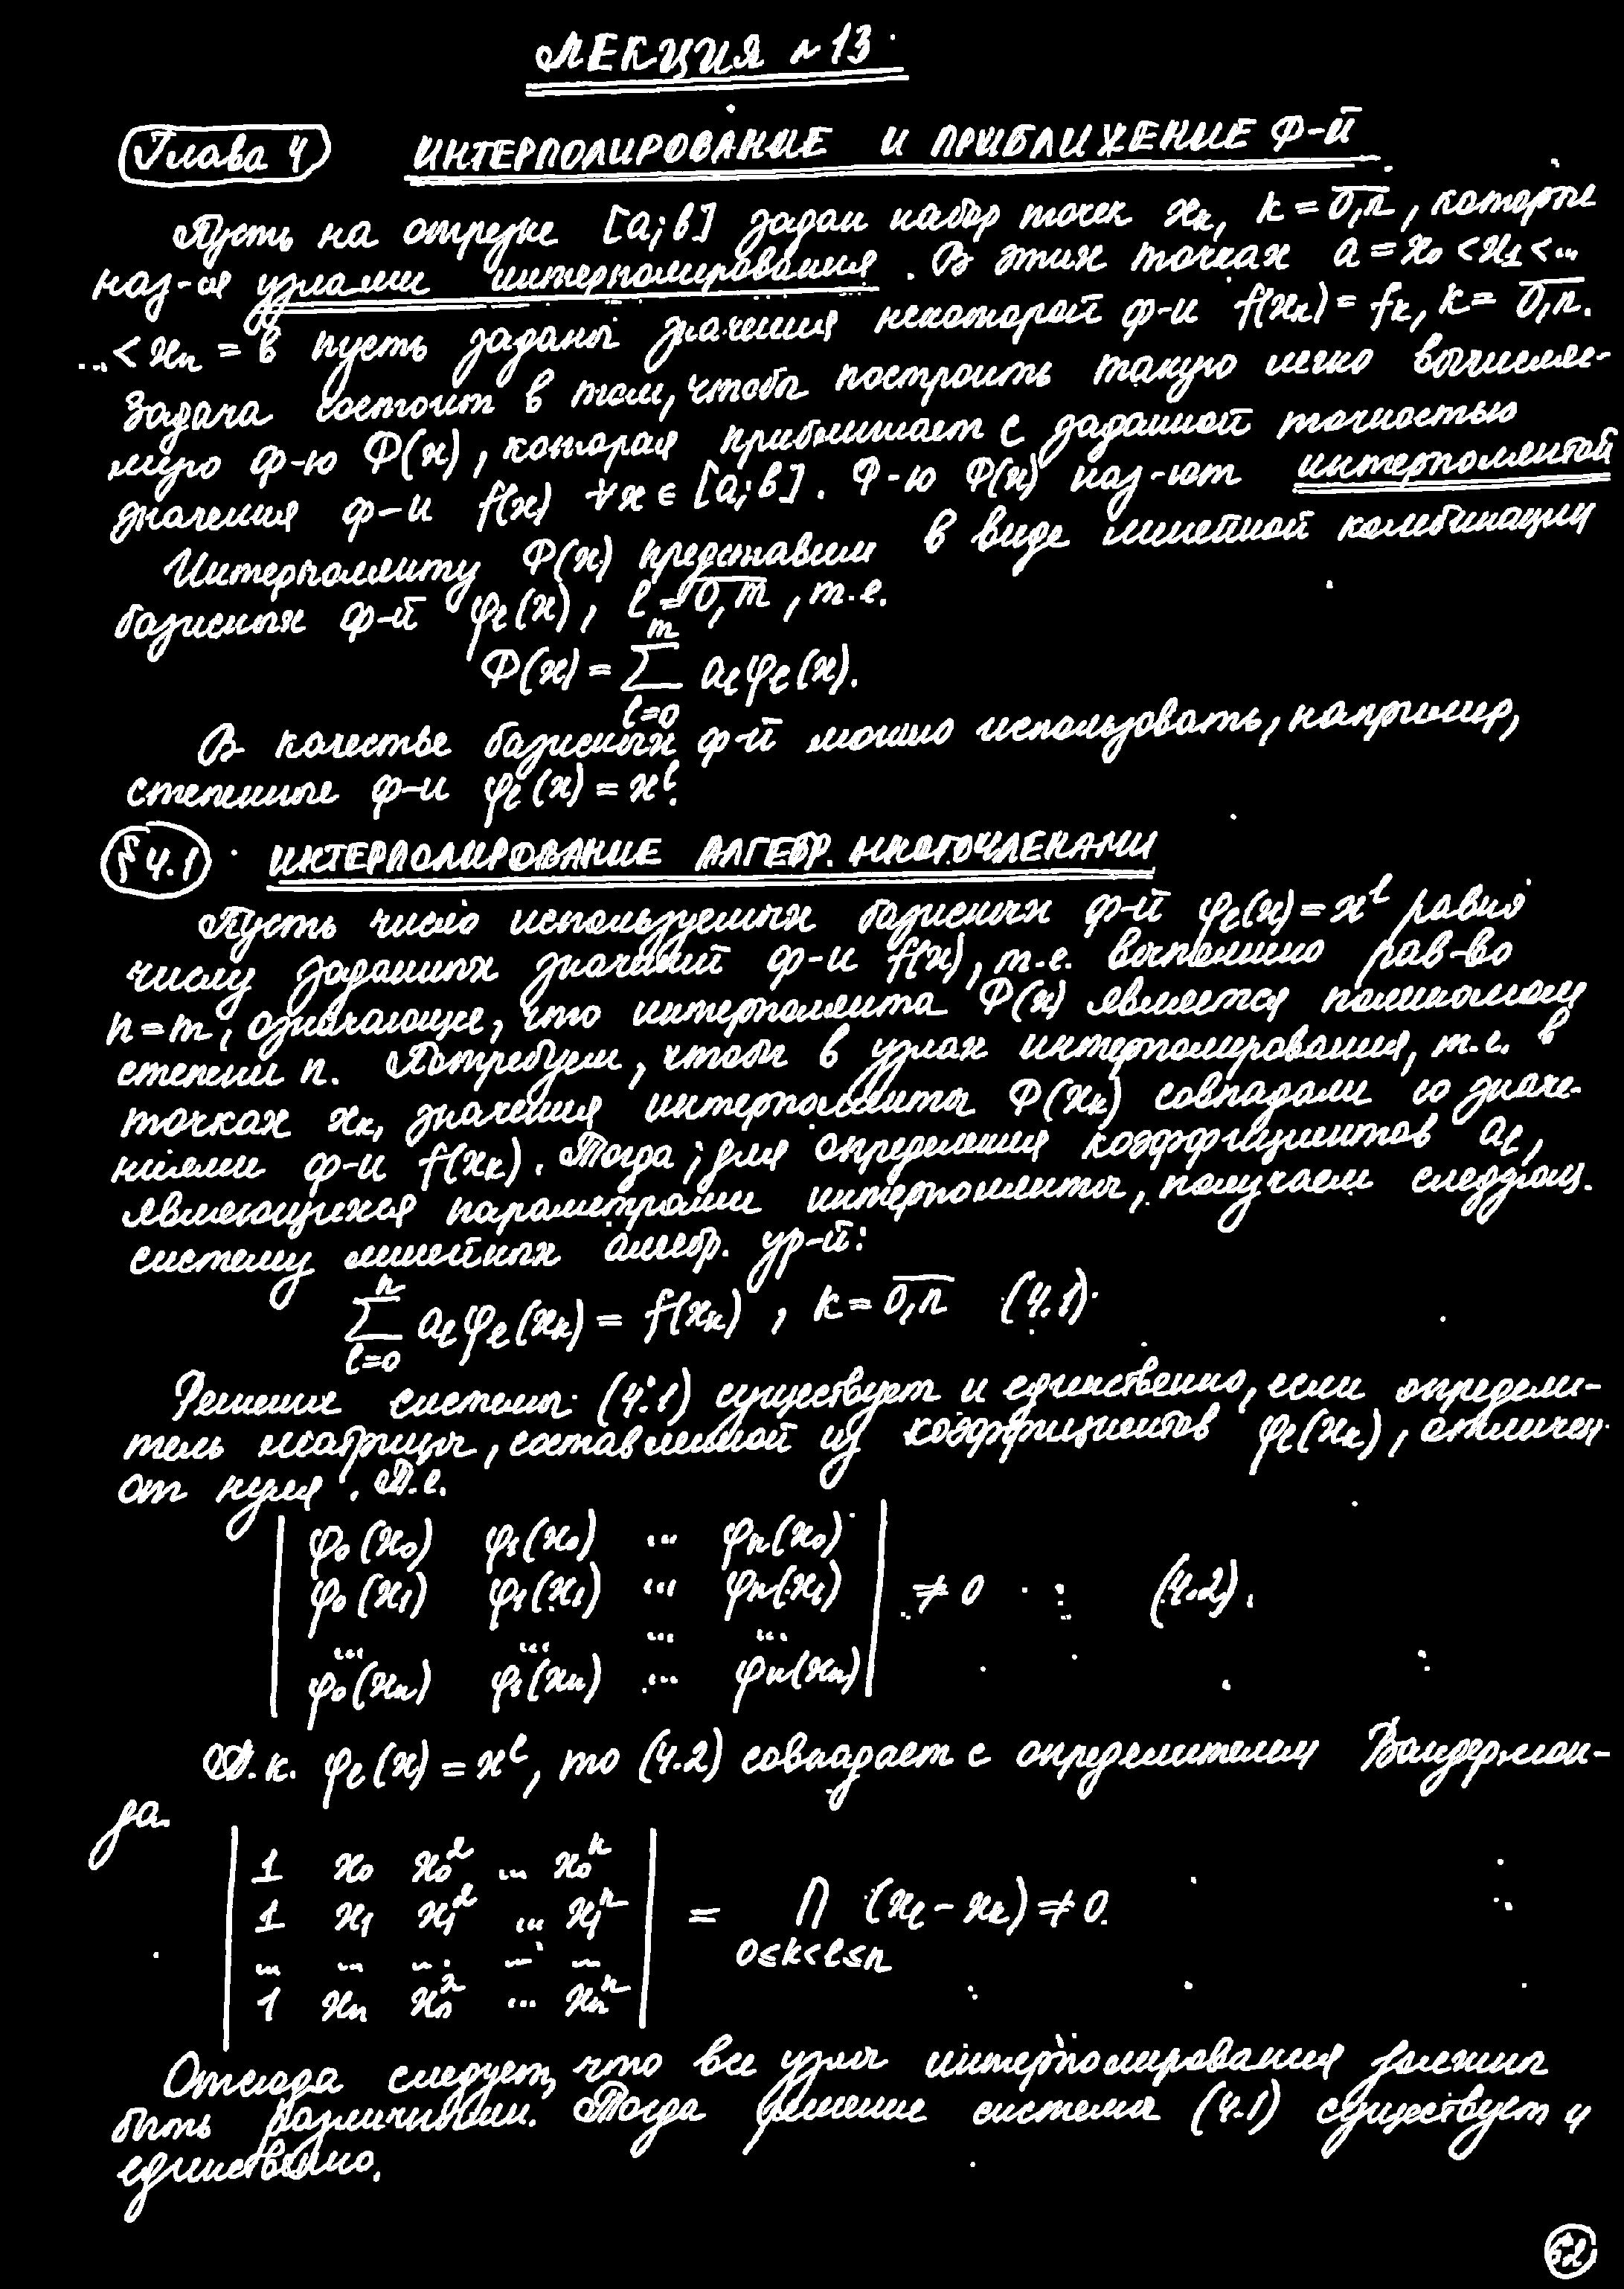 ЛЕКЦИЯ N 13.
Глава 4 ИНТЕРПОЛИРОВАНИЕ И ПРИБЛИЖЕНИЕ Ф-Й
Пусть на отрезке [a;b] задан набор точек xₖ, k = 0,n̅, которые
наз-ся узлами интерполирования. В этих точках a = x₀ < x₁ < ...
... < xₙ = b пусть заданы значения некоторой ф-и f(xₖ) = fₖ, k = 0,n̅.
Задача состоит в том, чтобы построить такую легко вычисляе-
мую ф-ю Ф(x), которая приближает с заданной точностью
значения ф-и f(x) ∀x ∈ [a;b]. Ф-ю Ф(x) наз-ют интерполянтой
Интерполянту Ф(x) представим в виде линейной комбинации
базисных ф-й φₗ(x), l = 0,m̅, т.е.
Ф(x) = ∑_{l=0}^{m} aₗφₗ(x).
В качестве базисных ф-й можно использовать, например,
степенные ф-и φₗ(x) = xˡ.
§ 4.1 ИНТЕРПОЛИРОВАНИЕ АЛГЕБР. МНОГОЧЛЕНАМИ
Пусть число используемых базисных ф-й φₗ(x) = xˡ равно
числу заданных значений ф-и f(x), т.е. выполнено рав-во
n = m, означающее, что интерполянта Ф(x) является полиномом
степени n. Потребуем, чтобы в узлах интерполирования, т.е. в
точках xₖ, значения интерполянты Ф(xₖ) совпадали со значе-
ниями ф-и f(xₖ). Тогда, для определения коэффициентов aₗ,
являющихся параметрами интерполянты, получаем следующ.
систему линейных алгебр. ур-й:
∑_{l=0}^{n} aₗφₗ(xₖ) = f(xₖ), k = 0,n̅ (4.1)
Решение системы (4.1) существует и единственно, если определи-
тель матрицы, составленной из коэффициентов φₗ(xₖ), отличен
от нуля. Т.е.
| φ₀(x₀) φ₁(x₀) ... φₙ(x₀) |
| φ₀(x₁) φ₁(x₁) ... φₙ(x₁) | ≠ 0 (4.2).
| ... ... ... ... |
| φ₀(xₙ) φ₁(xₙ) ... φₙ(xₙ) |
Т.к. φₗ(x) = xˡ, то (4.2) совпадает с определителем Вандермон-
да.
| 1 x₀ x₀² ... x₀ⁿ |
| 1 x₁ x₁² ... x₁ⁿ | = ∏_{0≤k<l≤n} (xₗ - xₖ) ≠ 0.
| ... ... ... ... ... |
| 1 xₙ xₙ² ... xₙⁿ |
Отсюда следует, что все узлы интерполирования должны
быть различными. Тогда решение системы (4.1) существует и
единственно.
62